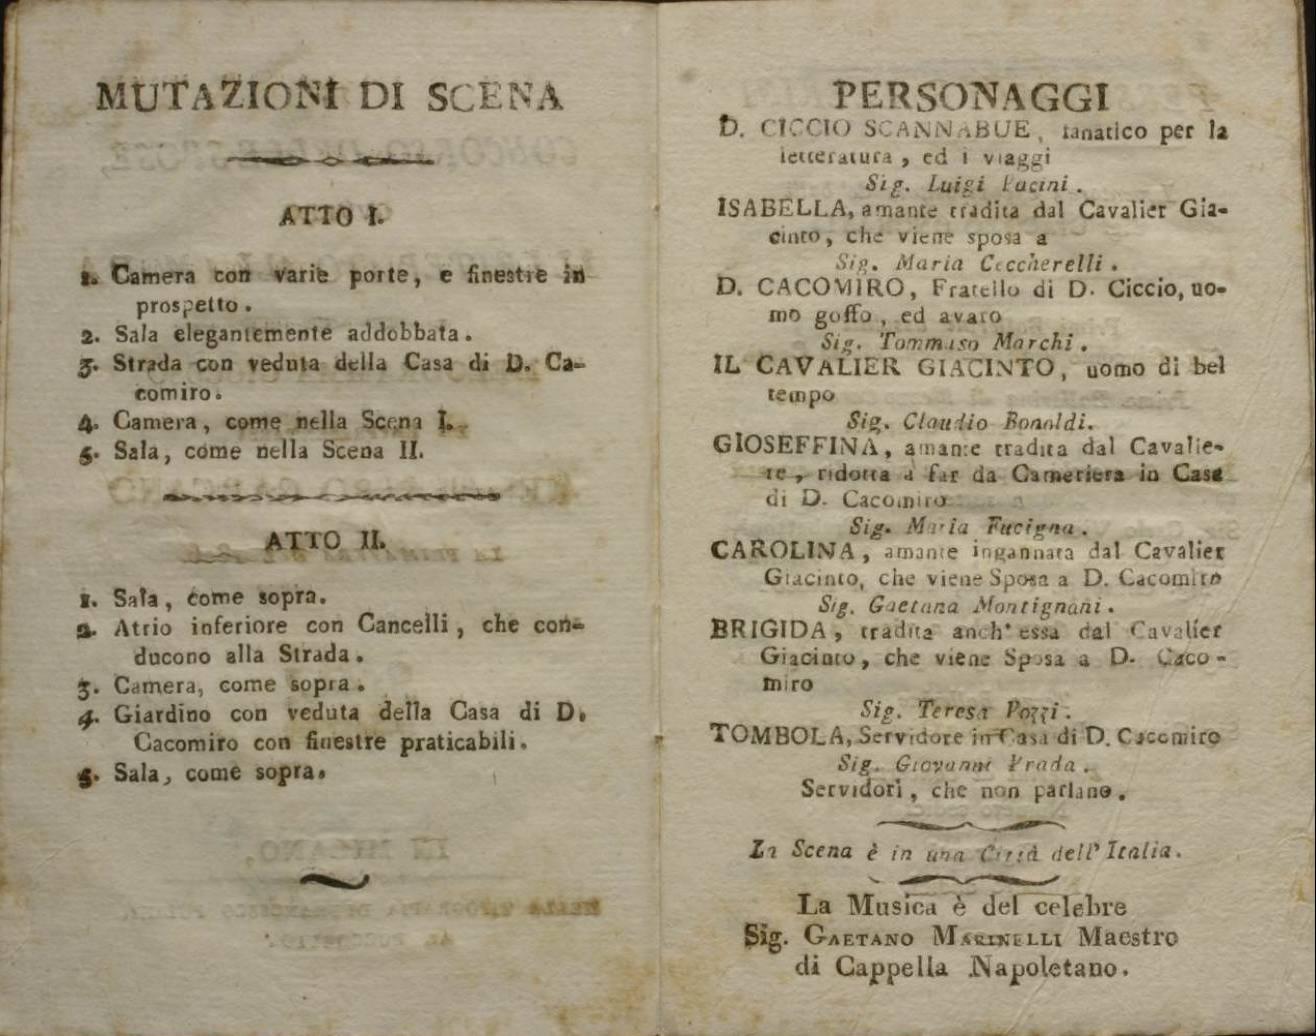 MUTAZIONI DI SCENA
ATTO I.
1. Camera con varie porte, e finestre in
prospetto.
2. Sala elegantemente addobbata.
3. Strada con veduta della Casa di D. Ca-
comiro.
4. Camera, come nella Scena I.
5. Sala, come nella Scena II.
ATTO II.
1. Sala, come sopra.
2. Atrio inferiore con Cancelli, che con-
ducono alla Strada.
3. Camera, come sopra.
4. Giardino con veduta della Casa di D.
Cacomiro con finestre praticabili.
5. Sala, come sopra.
PERSONAGGI
D. CICCIO SCANNABUE, fanatico per la
letteratura, ed i viaggi
Sig. Luigi Pacini.
ISABELLA, amante tradita dal Cavalier Gia-
cinto, che viene sposa a
Sig. Maria Ceccherelli.
D. CACOMIRO, Fratello di D. Ciccio, uo-
mo goffo, ed avaro
Sig. Tommaso Marchi.
IL CAVALIER GIACINTO, uomo di bel
tempo
Sig. Claudio Bonoldi.
GIOSEFFINA, amante tradita dal Cavalie-
re, ridotta a far da Cameriera in Casa
di D. Cacomiro
Sig. Maria Fucigna.
CAROLINA, amante ingannata dal Cavalier
Giacinto, che viene Sposa a D. Cacomiro
Sig. Gaetana Montignani.
BRIGIDA, tradita anch' essa dal Cavalier
Giacinto, che viene Sposa a D. Caco-
miro
Sig. Teresa Pozzi.
TOMBOLA, Servidore in Casa di D. Cacomiro
Sig. Giovanni Prada.
Servidori, che non parlano.
La Scena è in una Città dell' Italia.
La Musica è del celebre
Sig. GAETANO MARINELLI Maestro
di Cappella Napoletano.